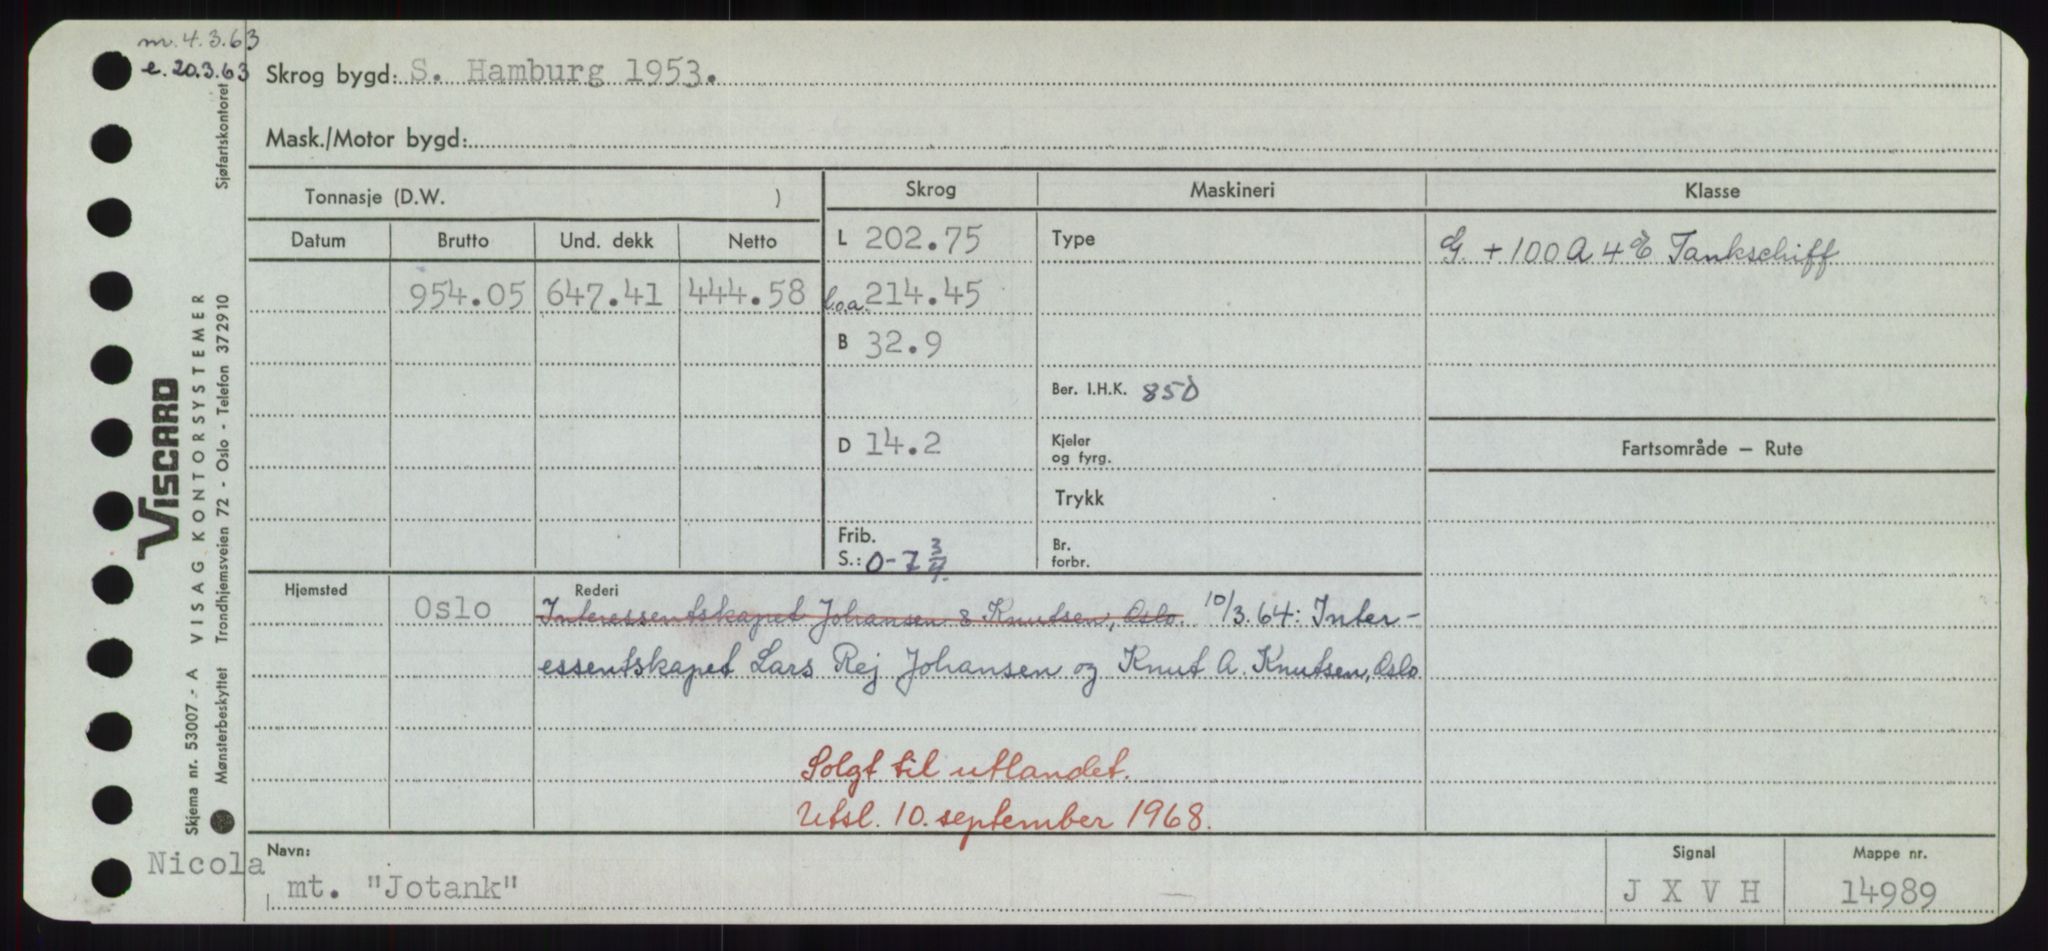 m. 4.3.63
e. 20.3.63
Skrog bygd: S. Hamburg 1953.
Mask./Motor bygd:
Tonnasje (D.W. )
Skrog
Maskineri
Klasse
Datum
Brutto
Und. dekk
Netto
L 202.75
Type
G. + 100 A 4 E Tankschiff
954.05
647.41
444.58
l.o.a. 214.45
B 32.9
Ber. I.H.K. 850
D 14.2
Kjeler
og fyrg.
Fartsområde – Rute
Trykk
Frib.
S.: 0-7 3/4
Br.
forbr.
Hjemsted
Oslo
Rederi
Interessentskapet Johansen & Knutsen, Oslo. 10/3.64: Inter-
essentskapet Lars Rej Johansen og Knut A. Knutsen, Oslo
Solgt til utlandet.
Utsl. 10. september 1968.
Navn:
Nicola
mt. "Jotank"
Signal
J X V H
Mappe nr.
14989
VISCARD
VISAG KONTORSYSTEMER
Sjøfartskontoret
Skjema nr. 53007 - A
Mønsterbeskyttet Trondhjemsveien 72 - Oslo - Telefon 372910